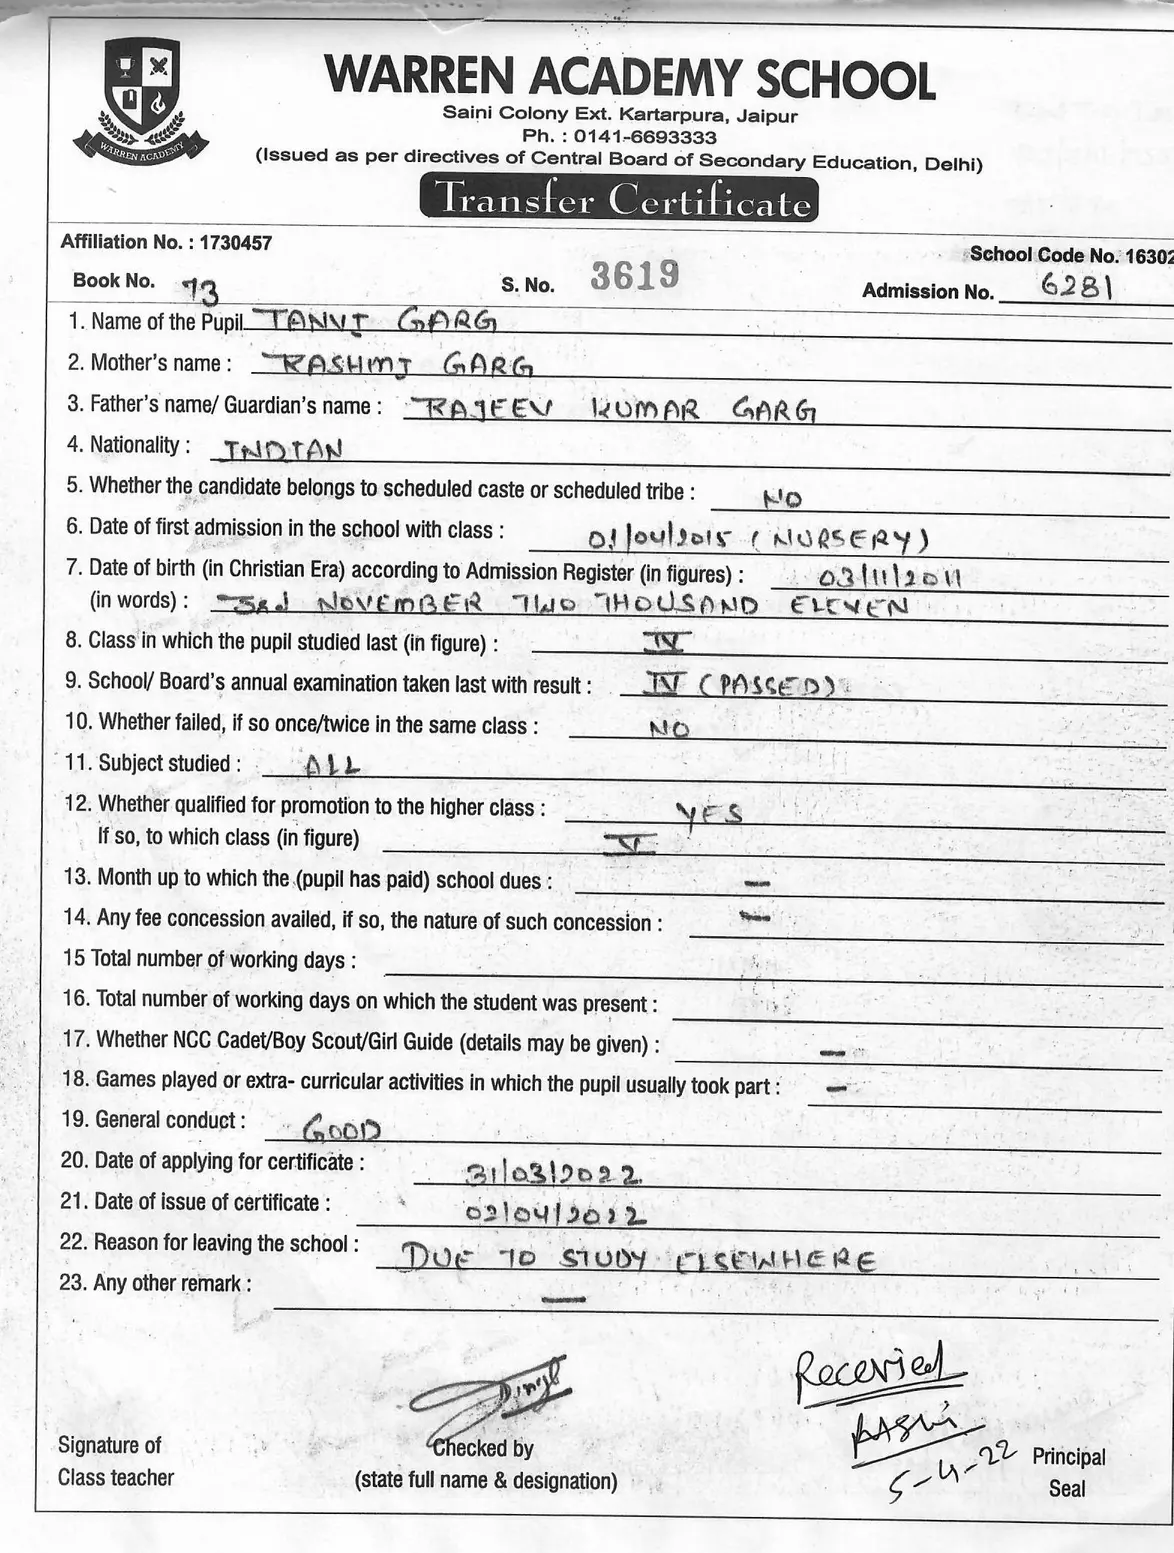 WARREN ACADEMY
WARREN ACADEMY SCHOOL
Saini Colony Ext. Kartarpura, Jaipur
Ph. : 0141-6693333
(Issued as per directives of Central Board of Secondary Education, Delhi)
Transfer Certificate
Affiliation No. : 1730457 School Code No. 16302
Book No. 73 S. No. 3619 Admission No. 6281
1. Name of the Pupil TANVI GARG
2. Mother's name : RASHMI GARG
3. Father's name/ Guardian's name : RAJEEV KUMAR GARG
4. Nationality : INDIAN
5. Whether the candidate belongs to scheduled caste or scheduled tribe : NO
6. Date of first admission in the school with class : 01/04/2015 (NURSERY)
7. Date of birth (in Christian Era) according to Admission Register (in figures) : 03/11/2011
(in words) : 3rd NOVEMBER TWO THOUSAND ELEVEN
8. Class in which the pupil studied last (in figure) : IV
9. School/ Board's annual examination taken last with result : IV (PASSED)
10. Whether failed, if so once/twice in the same class : NO
11. Subject studied : ALL
12. Whether qualified for promotion to the higher class : YES
If so, to which class (in figure) V
13. Month up to which the (pupil has paid) school dues : —
14. Any fee concession availed, if so, the nature of such concession : —
15 Total number of working days :
16. Total number of working days on which the student was present :
17. Whether NCC Cadet/Boy Scout/Girl Guide (details may be given) : —
18. Games played or extra- curricular activities in which the pupil usually took part : —
19. General conduct : GOOD
20. Date of applying for certificate : 31/03/2022
21. Date of issue of certificate : 02/04/2022
22. Reason for leaving the school : DUE TO STUDY ELSEWHERE
23. Any other remark : —
Receried
5-4-22
Signature of
Class teacher
Checked by
(state full name & designation)
Principal
Seal